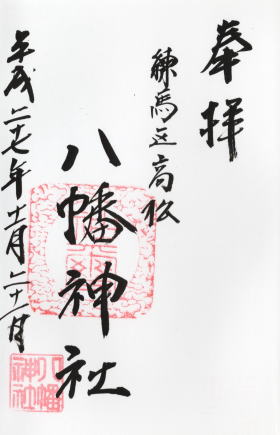 奉拝
練馬区高松
八幡神社
平成二十七年十一月二十一日
八幡
神社